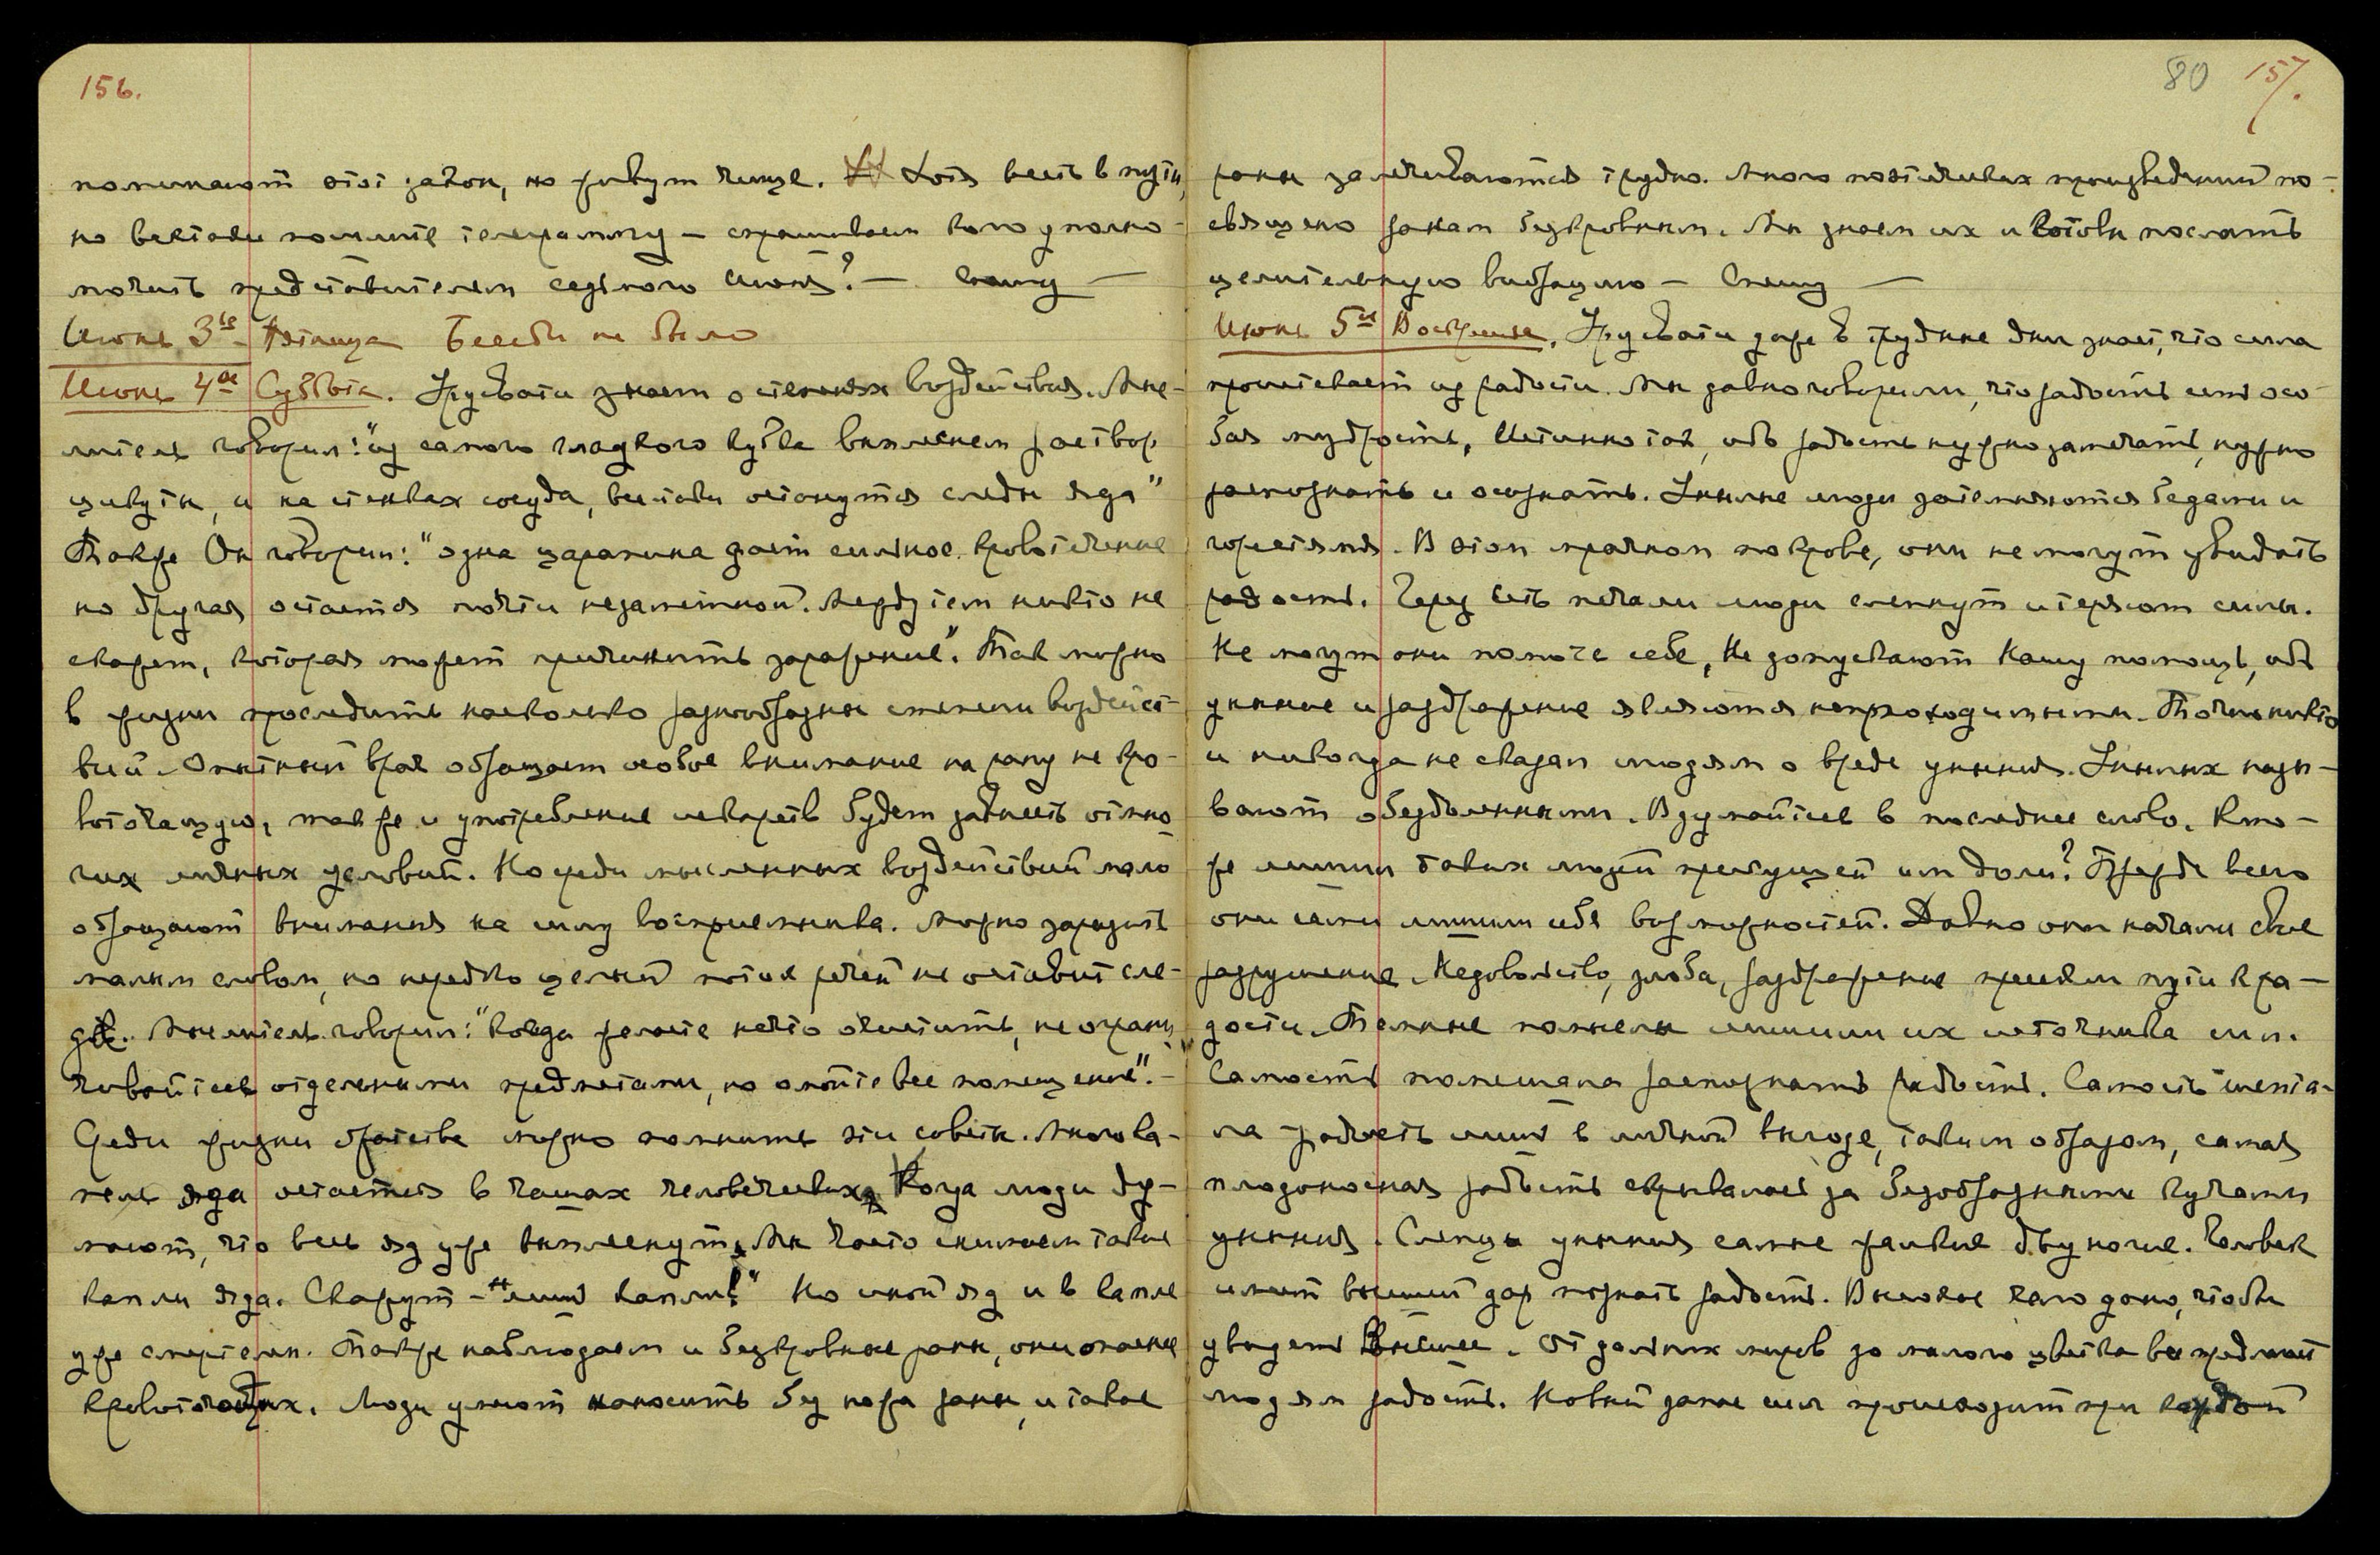 156.
понимают этот закон, но живут иначе. Хотя весть в пути,
но кстати пошлите телеграмму — спрашиваем кого уполно-
мочить представителем седьмого июня? — Спешу —
Июнь 3ье Пятница Беседы не было
Июнь 4ое Суббота. Урусвати знает о степенях воздействия. Мыс-
литель говорил: "из самого гладкого кубка выплеснем раствор
цикуты, и на стенках сосуда, всё-таки останутся следы яда"
Также Он говорил: "одна царапина даёт сильное кровотечение
но другая остаётся почти незаметной. Между тем никто не
скажет, которая может причинить заражение". Так можно
в жизни проследить насколько разнообразны степени воздейст-
вий. Опытный врач обращает особое внимание на рану не кро-
воточащую, так же и употребление лекарств будет зависеть от мно-
гих личных условий. Но среди мысленных воздействий мало
обращают внимания на силу восприемника. Можно заразить
малым словом, но нередко целый поток речей не оставит сле-
дов. Мыслитель говорил: "Когда хотите нечто очистить, не ограни-
чивайтесь отдельными предметами, но омойте все помещение". —
Среди жизни братства можно помнить эти советы. Много ка-
пель яда остается в чашах человеческих. Когда люди ду-
мают, что весь яд уже выплеснут, Мы часто снимаем такие
капли яда. Скажут — "лишь капли!" Но иной яд и в капле
уже смертелен. Также наблюдаем и бескровные раны, они опаснее
кровоточащих. Люди умеют наносить без ножа раны, и такие
80 157.
раны залечиваются трудно. Много поэтических произведений по-
священо ранам бескровным. Мы знаем их и готовы послать
целительную вибрацию — Спешу —
Июнь 5ое Воскресенье. Урусвати даже в трудные дни знает, что сила
проистекает из радости. Мы давно говорили, что радость есть осо-
бая мудрость. Истинно так, ибо радость нужно замечать, нужно
распознать и осознать. Унылые люди затемняются бедами и
горестями. В этом мрачном покрове, они не могут увидать
радость. Через сеть печали люди слепнут и теряют силы.
Не могут они помочь себе, Не допускают Нашу помощь, ибо
уныние и раздражение являются непроходимыми. Точно никто
и никогда не сказал людям о вреде уныния. Унылых назы-
вают обездоленными. Вдумайтесь в последнее слово. Кто
же лишил таких людей присущей им доли? Прежде всего
они сами лишили себя возможностей. Давно они начали свое
разрушение. Недовольство, злоба, раздражение пресекли пути к ра-
дости. Темные помыслы лишили их источника сил.
Самость помешала распознать радость. Самость шепта-
ла — радость лишь в личной выгоде, таким образом, самая
плодоносная радость скрывалась за безобразными кучами
уныния. Слепцы уныния самые жалкие двуногие. Человек
имеет высший дар познать радость. Высокое чело дано, чтобы
увидеть Высшее. От дальних миров до малого цветка все предлагает
людям радость. Новый запас сил происходит при каждой